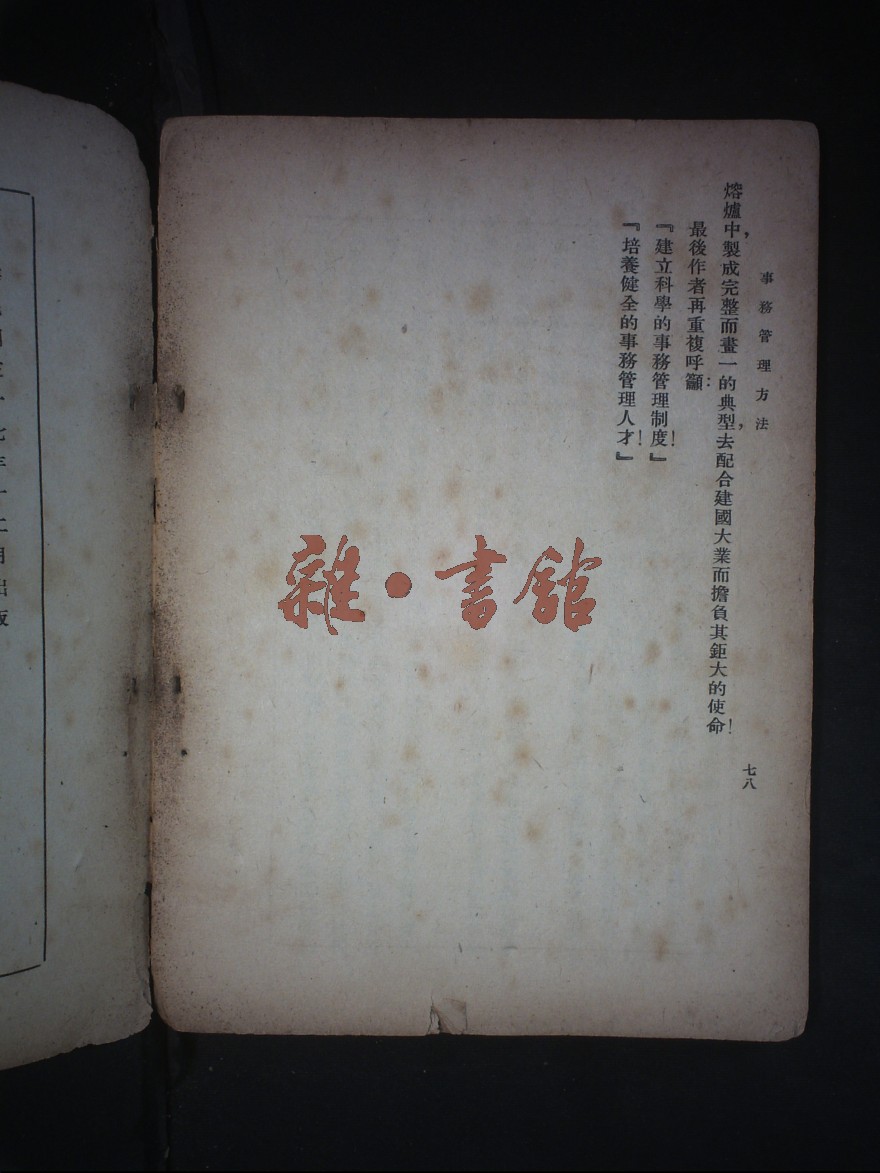 事務管理方法
熔爐中，製成完整而畫一的典型，去配合建國大業而擔負其鉅大的使命！
最後作者再重複呼籲：
『建立科學的事務管理制度！』
『培養健全的事務管理人才！』
七八
雜·書館
年十二月出版